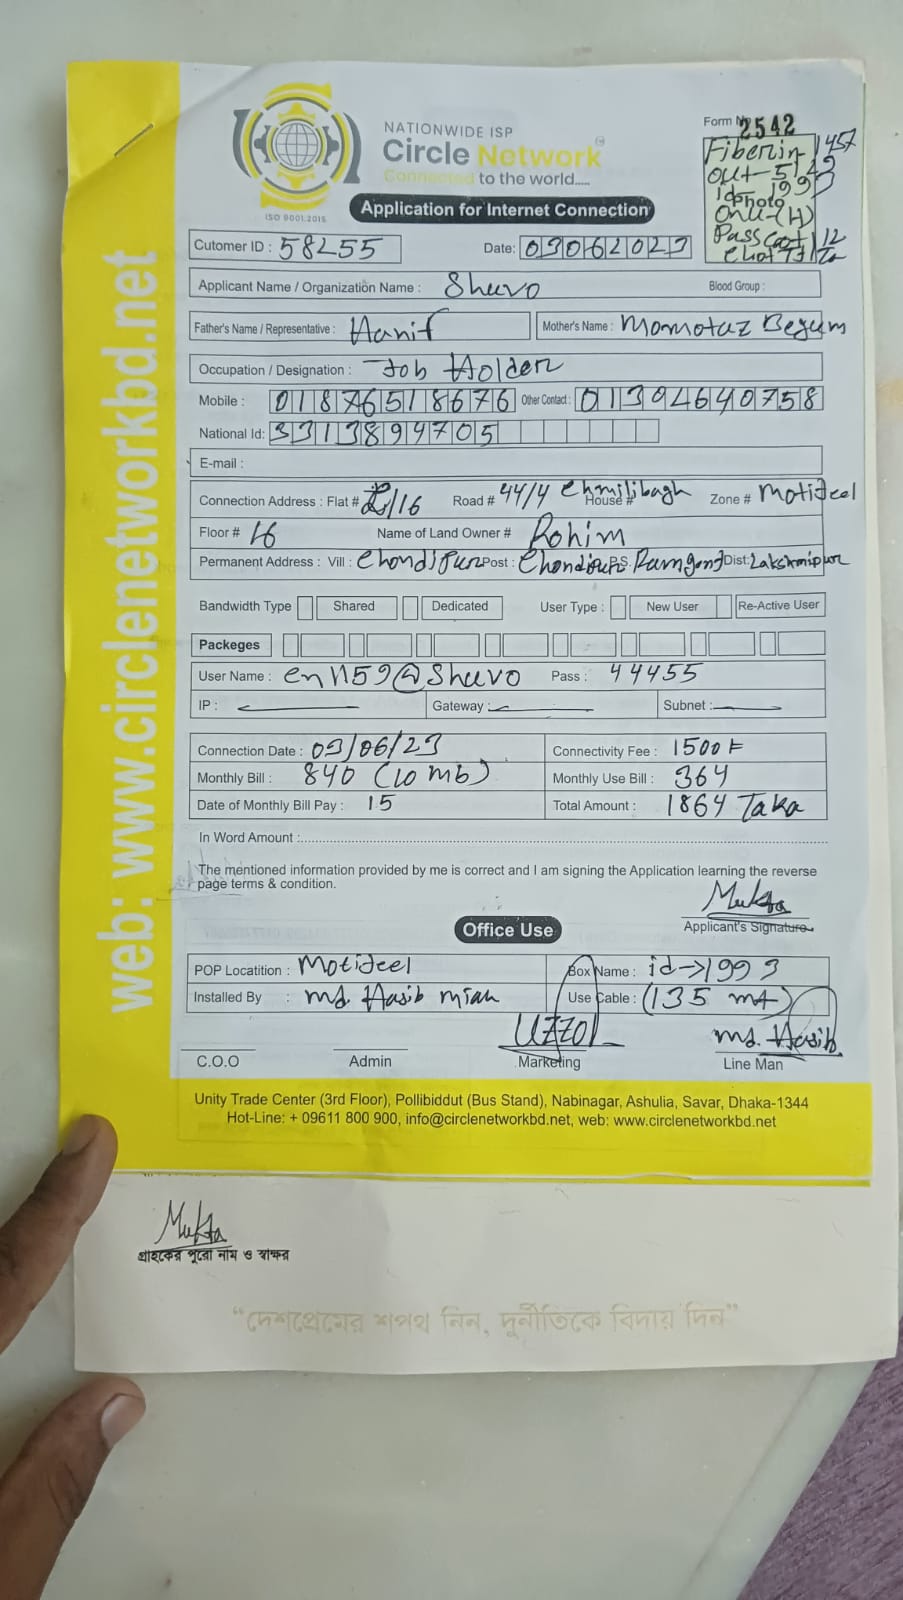 NATIONWIDE ISP
Circle Network
Connected to the world.....
ISO 9001:2015
Form No 2542
Fiber in 1457
out - 5129
id - 1993
photo
Onu - (H)
Pass
Application for Internet Connection
Cutomer ID : 58255 Date: 03062023
Applicant Name / Organization Name : Shuvo Blood Group :
Father's Name / Representative : Hanif Mother's Name : Momotaz Begum
Occupation / Designation : Job Holder
Mobile : 01876518676 Other Contact : 01304640758
National Id: 3313894705
E-mail :
Connection Address : Flat # /16 Road # 44/4 Chmilibagh House # Zone # Motijeel
Floor # 16 Name of Land Owner # Rohim
Permanent Address : Vill : Chondipur Post : Chondipur P.S. Ramgonj Dist: Lakshmipur
Bandwidth Type Shared Dedicated User Type : New User Re-Active User
Packeges
User Name : en1159@Shuvo Pass : 44455
IP : Gateway : Subnet :
Connection Date : 03/06/23 Connectivity Fee : 1500 ৳
Monthly Bill : 840 (10 mb) Monthly Use Bill : 364
Date of Monthly Bill Pay : 15 Total Amount : 1864 Taka
In Word Amount :
The mentioned information provided by me is correct and I am signing the Application learning the reverse
page terms & condition.
Mukta
Applicant's Signature
Office Use
POP Locatition : Motijeel Box Name : id→1993
Installed By : md. Hasib mian Use Cable : (135 mt)
UZZOL md. Hasib
C.O.O Admin Marketing Line Man
Unity Trade Center (3rd Floor), Pollibiddut (Bus Stand), Nabinagar, Ashulia, Savar, Dhaka-1344
Hot-Line: + 09611 800 900, info@circlenetworkbd.net, web: www.circlenetworkbd.net
web: www.circlenetworkbd.net
Mukta
গ্রাহকের পুরো নাম ও স্বাক্ষর
“দেশপ্রেমের শপথ নিন, দুর্নীতিকে বিদায় দিন”